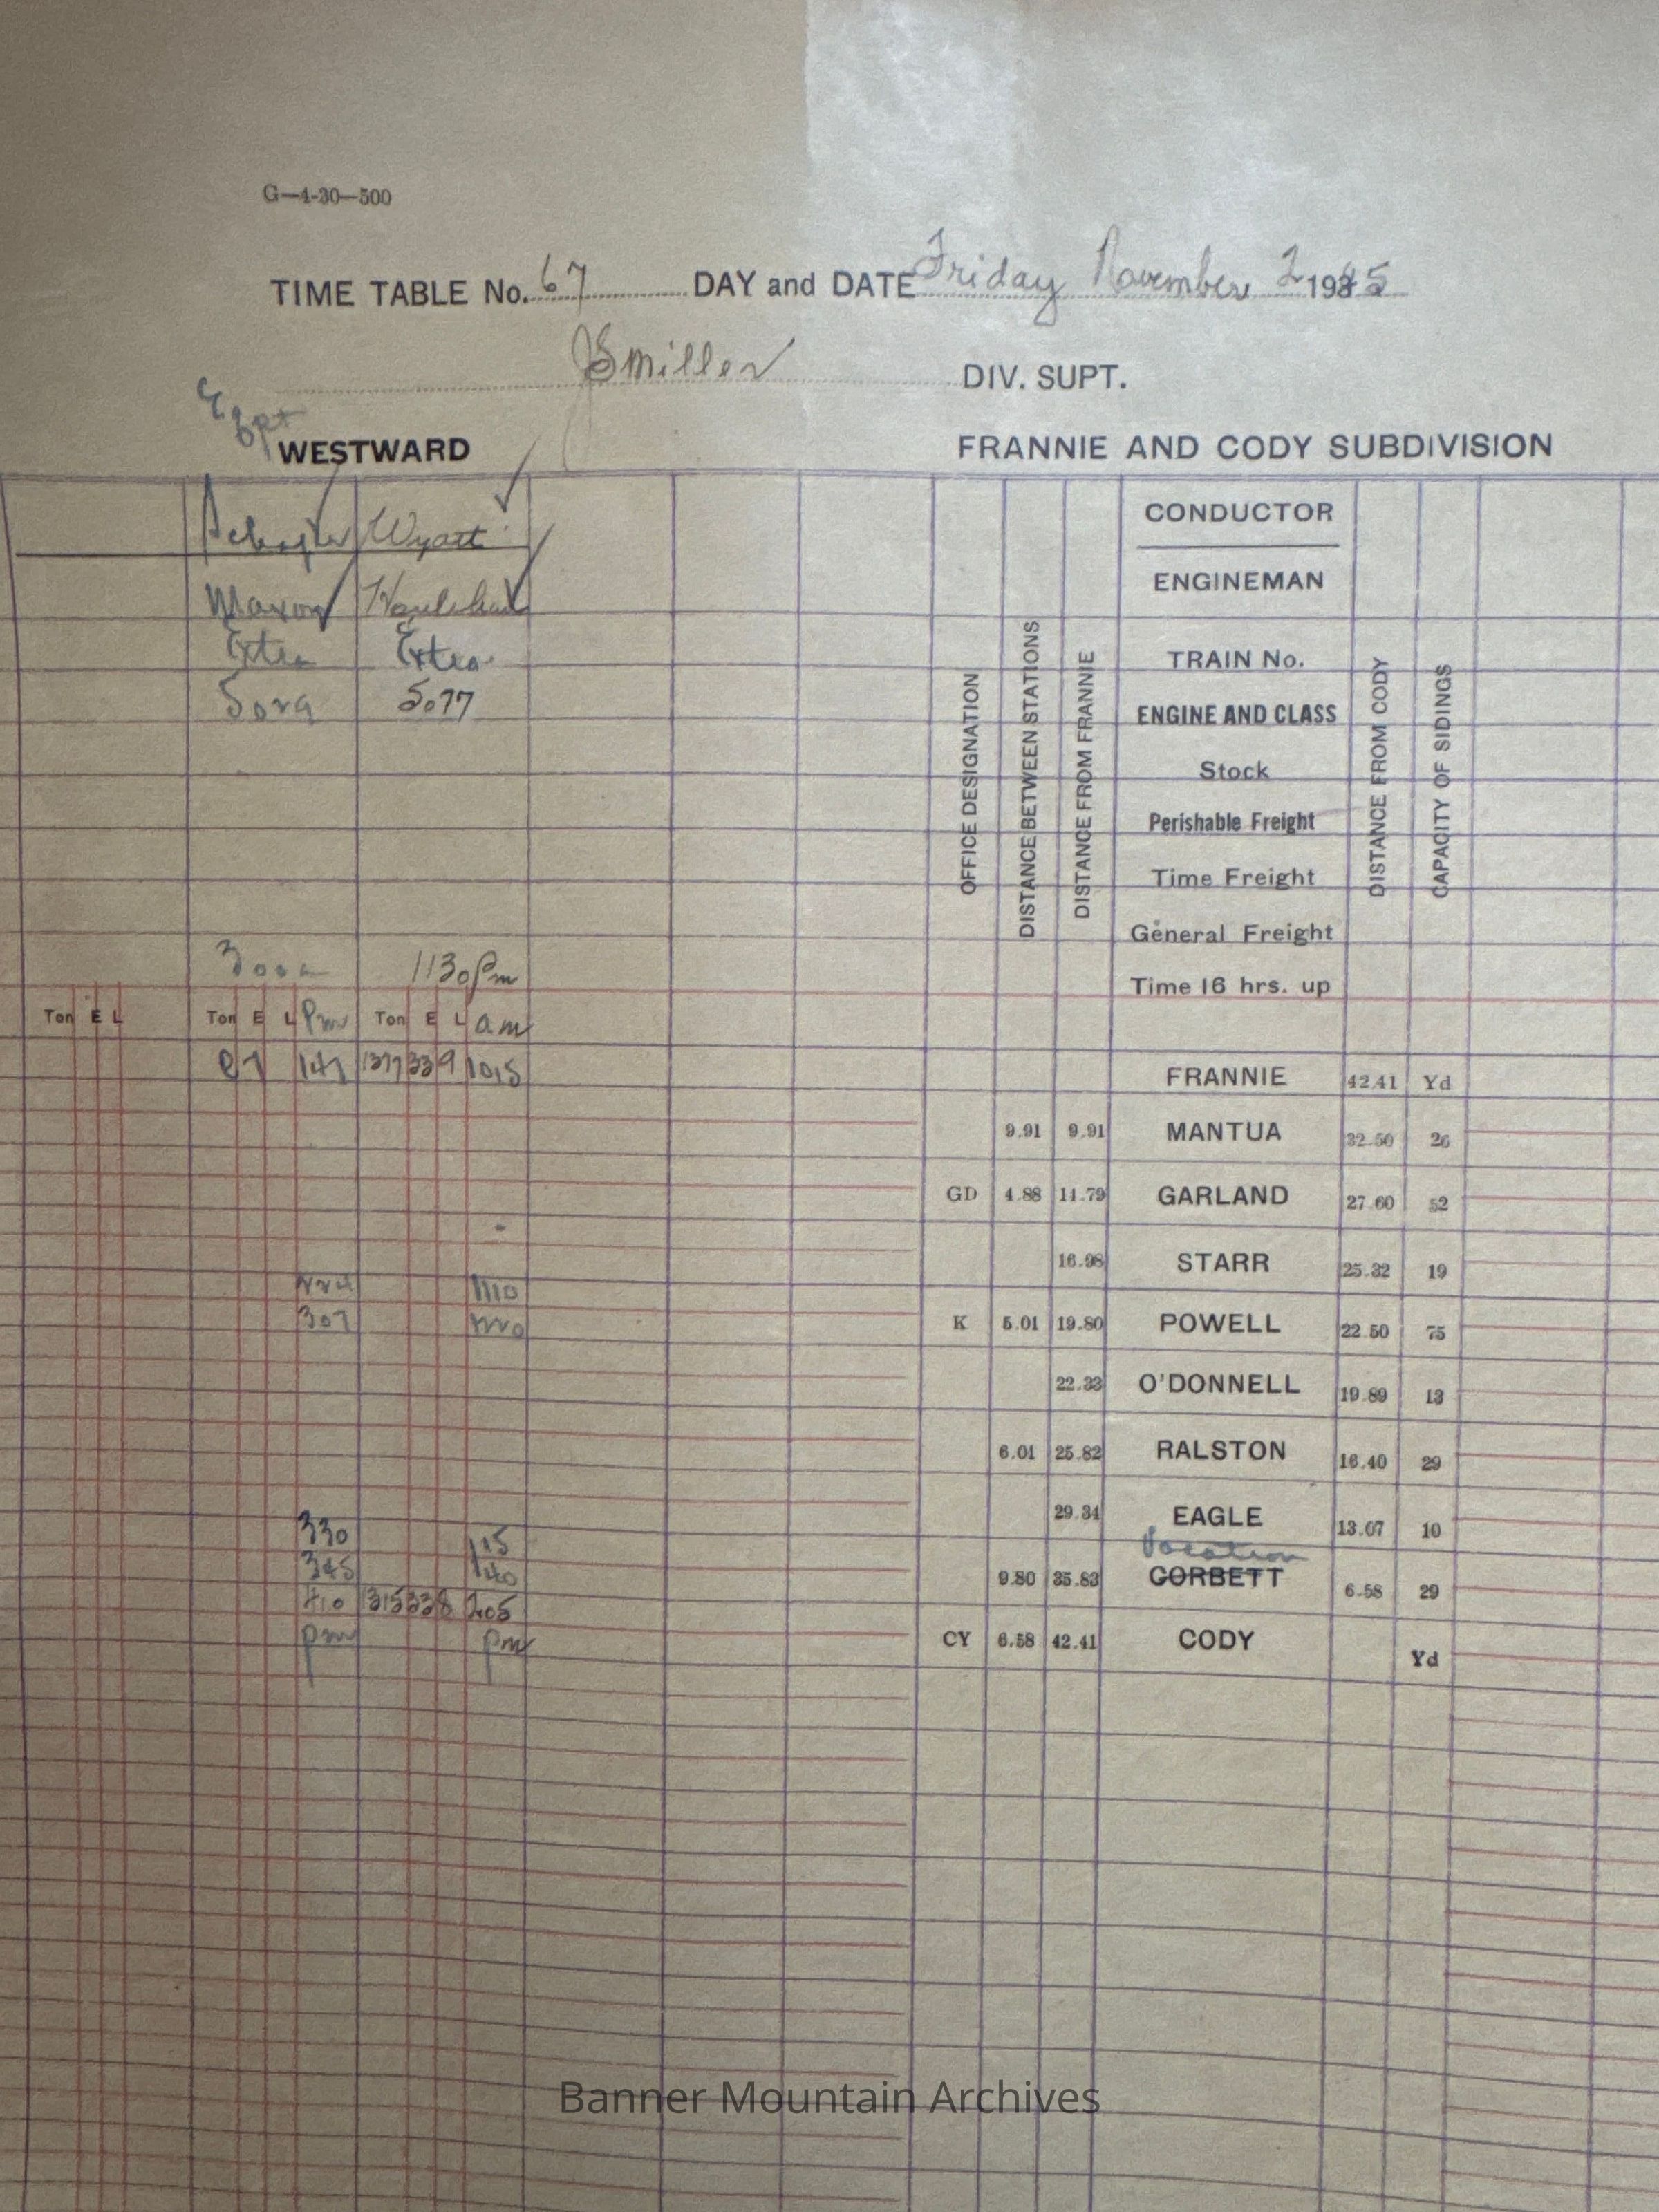 G—4-30—500
TIME TABLE No. 67 DAY and DATE Friday November 2 1945
Miller DIV. SUPT.
WESTWARD FRANNIE AND CODY SUBDIVISION
Wyatt CONDUCTOR
Maxon ENGINEMAN
Extra Extra TRAIN No.
5077 ENGINE AND CLASS
Stock
Perishable Freight
Time Freight
General Freight
1130 Pm Time 16 hrs. up
OFFICE DESIGNATION
DISTANCE BETWEEN STATIONS
DISTANCE FROM FRANNIE
DISTANCE FROM CODY
CAPACITY OF SIDINGS
Ton E L Ton E L Pm Ton E L am
147 1377 33 9 1015 FRANNIE 42.41 Yd
9.91 9.91 MANTUA 32.50 26
GD 4.88 14.79 GARLAND 27.60 52
1110 16.98 STARR 25.32 19
307 K 5.01 19.80 POWELL 22.50 75
22.33 O'DONNELL 19.89 13
6.01 25.82 RALSTON 16.40 29
330 115 29.34 EAGLE 13.07 10
Vocation
345 140 9.80 35.83 CORBETT 6.58 29
410 1315 33 8 205 CY 6.58 42.41 CODY Yd
pm pm
Banner Mountain Archives